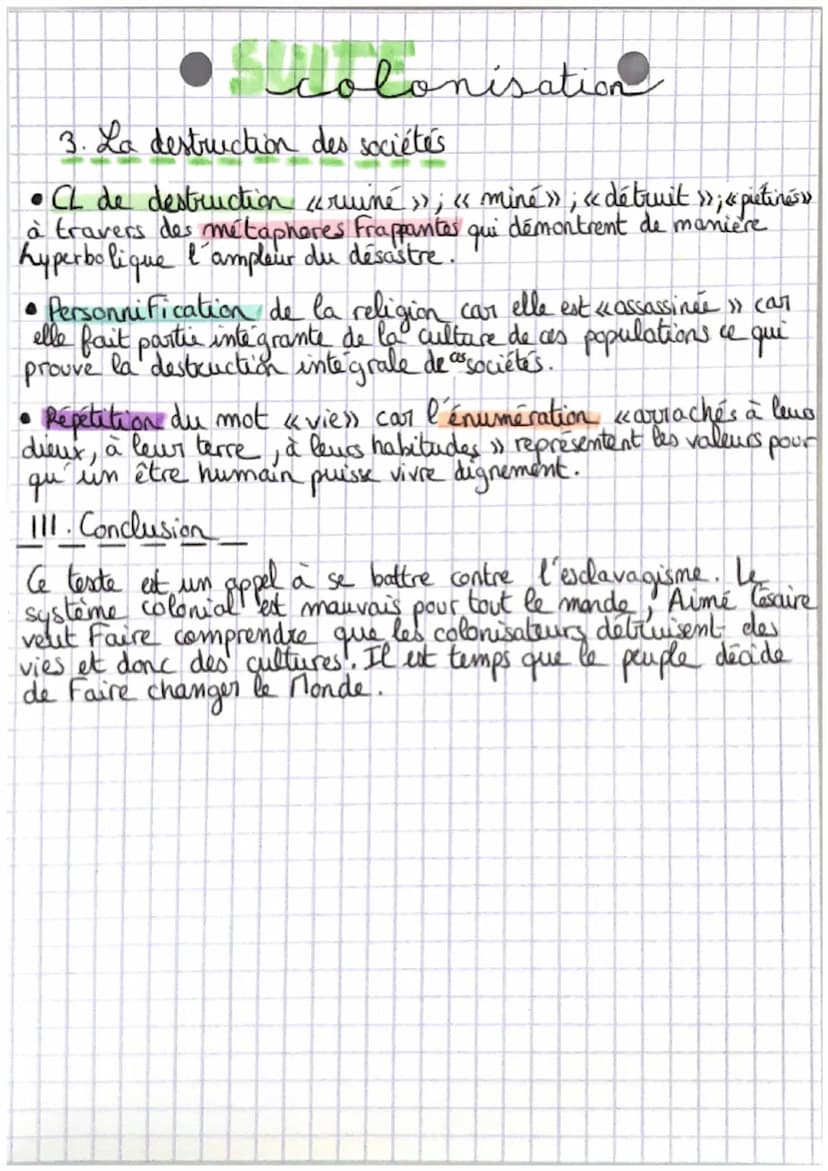 SUITE
colonisation
3. La destruction des sociétés
• CL de destruction « ruiné » ; « miné » ; « détruit » ; « piétinés »
à travers des métaphores Frappantes qui démontrent de manière
hyperbolique l'ampleur du désastre.
• Personnification de la religion car elle est « assassinée » car
elle fait partie intégrante de la culture de ces populations ce qui
prouve la destruction intégrale de ces sociétés.
• Répétition du mot « vie » car l'énumération « arrachés à leurs
dieux, à leur terre, à leurs habitudes » représentent les valeurs pour
qu'un être humain puisse vivre dignement.
III. Conclusion
Ce texte est un appel à se battre contre l'esclavagisme. Le
système colonial est mauvais pour tout le monde, Aimé Césaire
veut Faire comprendre que les colonisateurs détruisent des
vies et donc des cultures. Il est temps que le peuple décide
de Faire changer le Monde.